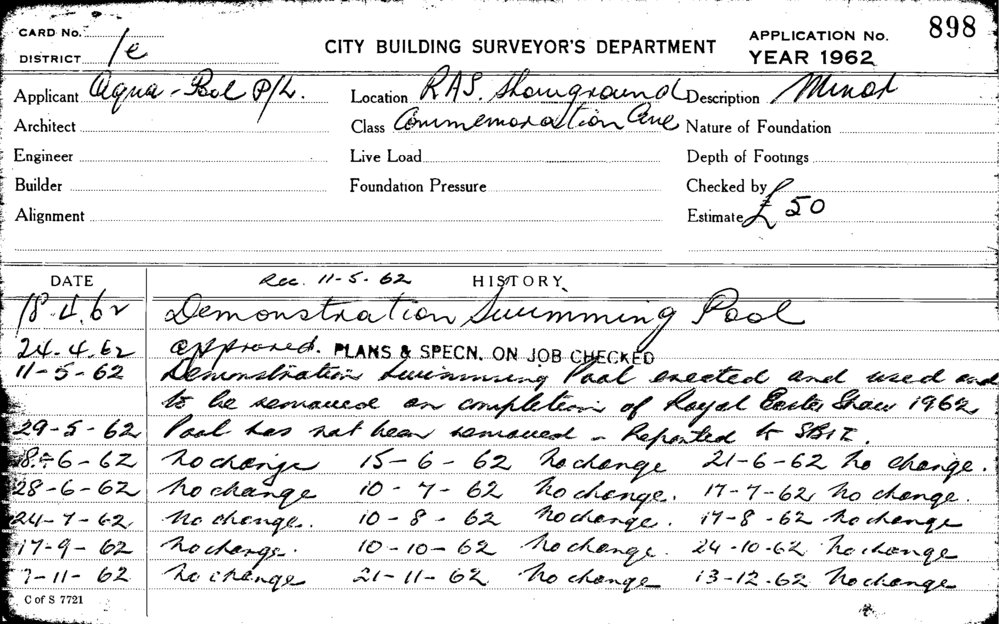 CARD No.
DISTRICT 1e
CITY BUILDING SURVEYOR'S DEPARTMENT
APPLICATION No. 898
YEAR 1962
Applicant Aqua-Pool P/L. Location RAS. Showground Description Minor
Architect Class Commemoration Ave Nature of Foundation
Engineer Live Load Depth of Footings
Builder Foundation Pressure Checked by
Alignment Estimate £50
DATE Rec. 11-5-62 HISTORY
18.4.62 Demonstration Swimming Pool
24.4.62 approved. PLANS & SPECN. ON JOB CHECKED
11-5-62 Demonstration Swimming Pool erected and used and
to be removed on completion of Royal Easter Show 1962
29-5-62 Pool has not been removed - Reported to
8-6-62 No change 15-6-62 No change 21-6-62 No change.
28-6-62 No change 10-7-62 No change. 17-7-62 No change.
24-7-62 No change. 10-8-62 No change. 17-8-62 No change
17-9-62 No change. 10-10-62 No change. 24-10-62 No change
7-11-62 No change 21-11-62 No change 13-12-62 No change
C of S 7721